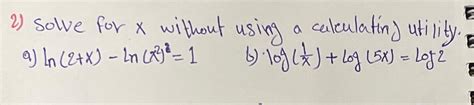 2) Solve for x without using a calculating utility.
a) ln(2+x) - ln(x²)² = 1 b) log(1/x) + log(5x) = log 2